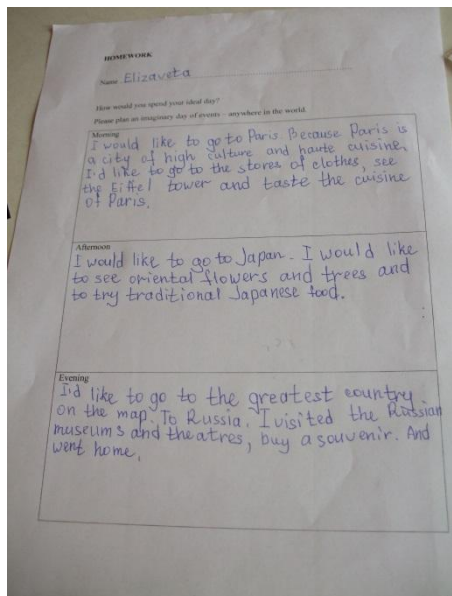 HOMEWORK
Name Elizaveta
How would you spend your ideal day?
Please plan an imaginary day of events – anywhere in the world.
Morning
I would like to go to Paris. Because Paris is
a city of high culture and haute cuisine,
I'd like to go to the stores of clothes, see
the Eiffel tower and taste the cuisine
of Paris.
Afternoon
I would like to go to Japan. I would like
to see oriental flowers and trees and
to try traditional Japanese food.
Evening
I'd like to go to the greatest country
on the map. To Russia. I visited the Russian
museums and theatres, buy a souvenir. And
went home.